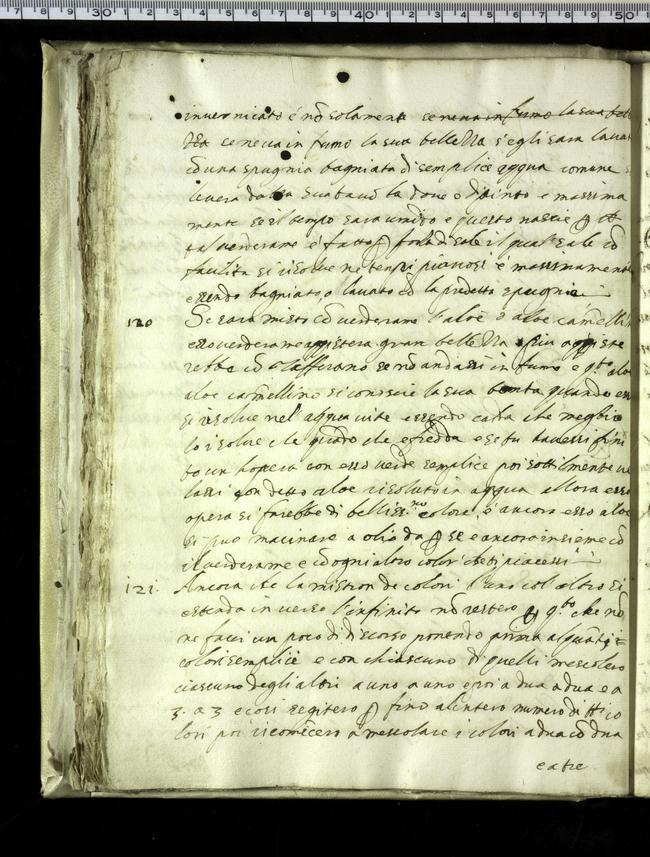 invernicato é nõ solamente se ne va in fumo la sua bel
lezza se ne va in fumo la sua bellezza s'egli sara lavato
cõ una spugnia bagniata di semplice acqua comune si
levera dalla sua tavola dove é dipinto e massima
mente se il tempo sara umido e questo nascie ꝑ
tal verderame é fatto ꝑ forza di sale il qual sale cõ
facilita si risolve ne tempi piovosi é massimamente
essendo bagniato o lavato cõ la predetta spugnia
120 Se sara misto cõ verderame l'aloe o aloe camellino
esso verderame aqistera gran bellezza e piu aqiste
rebbe cõ Zafferano se nõ andassi in fumo e aloe
aloe camellino si conoscie la sua bonta quando esso
si risolve nell'aqqua vite essendo calda che meglio
lo risolve che quãdo ele é fredda e se tu havessi fini
to un'hopera con esso verde semplice poi sottilmente ve
lassi con detto aloe risoluto in aqqua allora essa
opera si farebbe di belliss.mo colore é ancora esso aloe
si puo macinare a olio da ꝑ se e ancora insieme cõ
il verderame e cõ ogni altro color che ti piacessi
121. Ancora che la mistion de colori l'uno col'altro si
estenda in verso l'infinito nõ restero ꝑ q.sto che nõ
ne facci un poco di discorso ponendo prima alquãti
colori semplici e con chiascuno di quelli mescolero
ciascuno degli altri a uno a uno e poi a dua a dua e a
3. a 3 e cosi seguitero ꝑ fino al'intero numero di tti co
lori poi ricomẽcero a mescolare i colori a dua cõ dua
e a tre